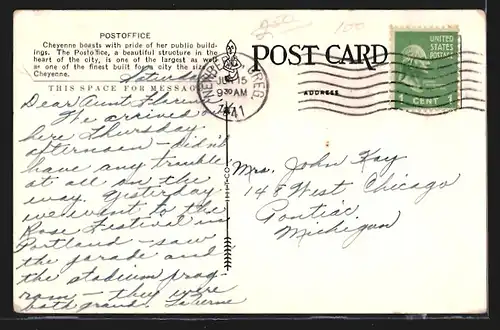 POSTOFFICE
Cheyenne boasts with pride of her public build-
ings. The Postoffice, a beautiful structure in the
heart of the city, is one of the largest as well
as one of the finest built for a city the size of
Cheyenne.
THIS SPACE FOR MESSAGE
POST CARD
ADDRESS
UNITED STATES
POSTAGE
1 CENT 1
NEWBERG OREG.
15
9 30 AM
1941
Saturday
Dear Aunt Floren
We arrived
here Thursday
afternoon - didn't
have any trouble
at all on the
way. Yesterday
we went to the
Rose Festival in
Portland - saw
the parade and
the stadium prog-
ram - they were
both grand. LaVerne
Mrs. John Kay
148 West Chicago
Pontiac
Michigan
100